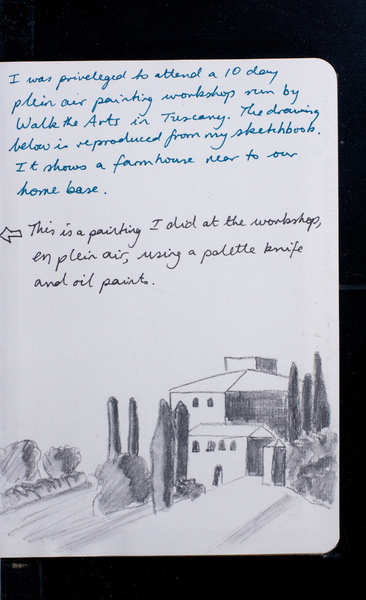 I was priveleged to attend a 10 day
plein air painting workshop run by
Walk the Arts in Tuscany. The drawing
below is reproduced from my sketchbook.
It shows a farmhouse near to our
home base.
This is a painting I did at the workshop,
en plein air, using a palette knife
and oil paints.